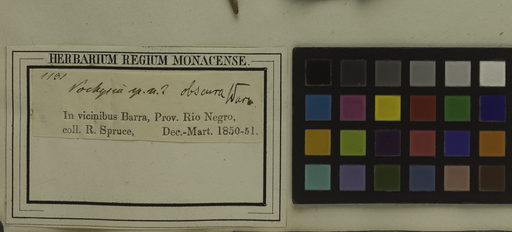 HERBARIUM REGIUM MONACENSE.
1131
Vochysia sp. n.? obscura Warm.
In vicinibus Barra, Prov. Rio Negro,
coll. R. Spruce, Dec.-Mart. 1850-51.